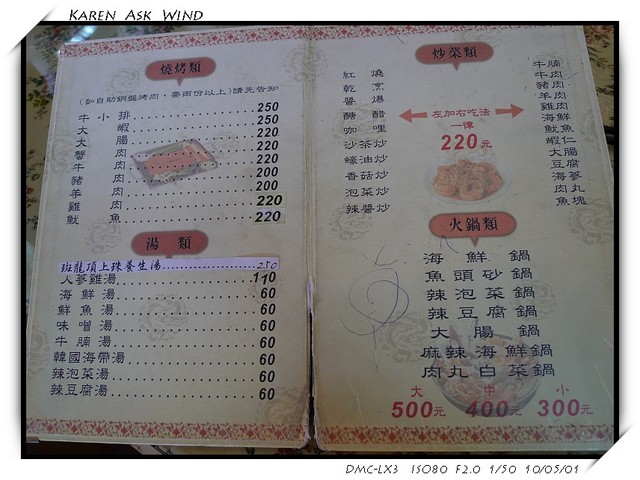 KAREN ASK WIND
燒烤類
(如自助銅盤烤肉，需兩份以上)請先告知
牛小排 250
大蝦 250
大腸 220
蟹肉 220
牛肉 220
豬肉 200
羊肉 200
雞肉 220
魷魚 220
湯類
班龍頂上珠養生湯 250
人蔘雞湯 110
海鮮湯 60
鮮魚湯 60
味噌湯 60
牛腩湯 60
韓國海帶湯 60
辣泡菜湯 60
辣豆腐湯 60
炒菜類
紅燒
乾烹
醬爆
醋醋
咖哩
沙茶炒
蠔油炒
香菇炒
泡菜炒
辣醬炒
左加右吃法
一律
220元
牛腩
牛肉
豬肉
羊肉
雞肉
海鮮
魷魚
蝦仁
大腸
豆腐
海蔘
肉丸
魚塊
火鍋類
海鮮鍋
魚頭砂鍋
辣泡菜鍋
辣豆腐鍋
大腸鍋
麻辣海鮮鍋
肉丸白菜鍋
大 中 小
500元 400元 300元
DMC-LX3 ISO80 F2.0 1/50 10/05/01